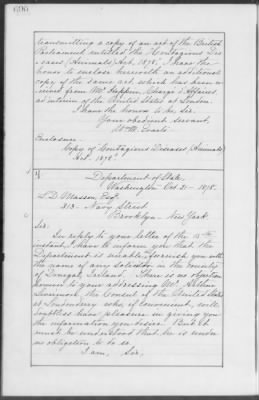 600.
transmitting a copy of an act of the British
Parliament entitled the Contagious Dis-
eases (Animals) Act, 1878, I have the
honor to enclose herewith an additional
copy of the same act which has been re-
ceived from Mr Hoppin, Chargé d'Affaires
ad interim of the United States at London.
I have the honor to be, Sir,
Your obedient servant,
Wm M. Evarts.
Enclosure.
Copy of Contagious Diseases (Animals)
Act. 1878.
Department of State,
Washington Oct. 21 — 1878.
L. D. Massom, Esqr
313 - Navy Street
Brooklyn - New York
Sir:
In reply to your letter of the
instant, I have to inform you that the
Department is unable, furnish you with
the name of any Solicitor in the county
of Donegal, Ireland. There is no objection
however to your addressing Mr. Arthur
Livermore, the Consul of the United States
at Londonderry who, if convenient, will
doubtless have pleasure in giving you
the information you desire. But it
must be understood that he is under
no obligation to do so.
I am, Sir,